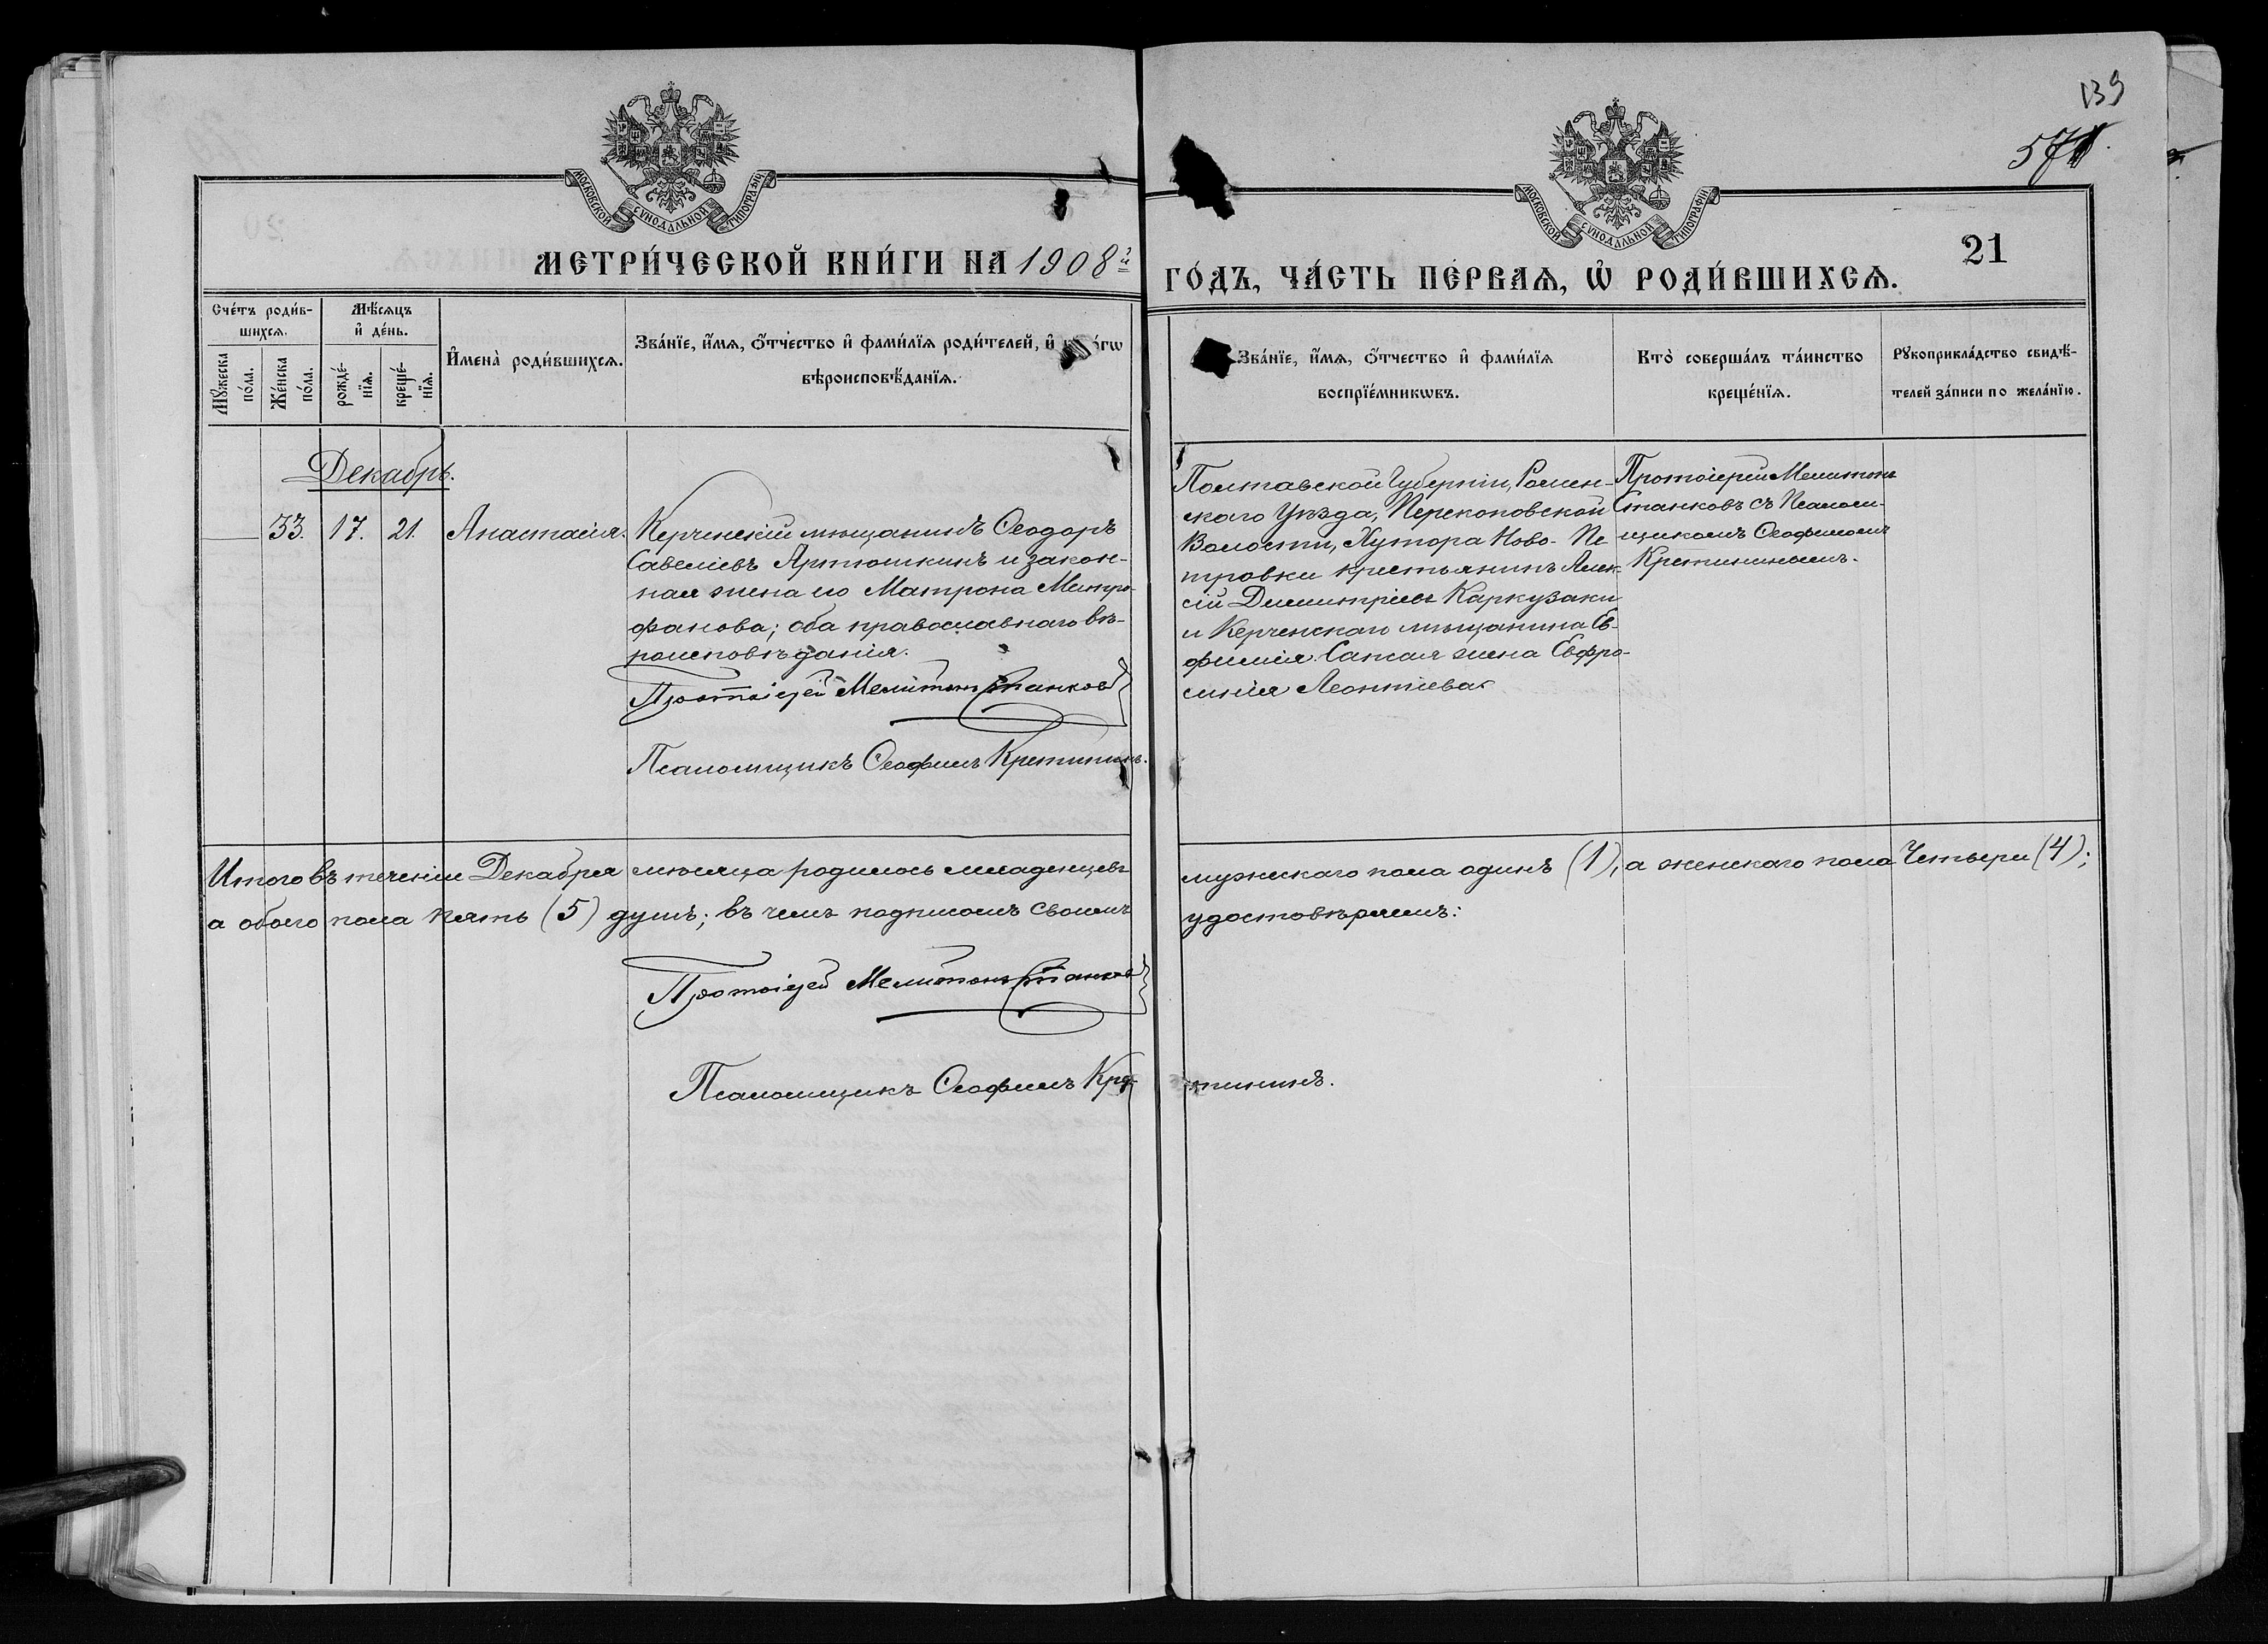 139
571
МОСКОВСКОЙ СУНОДАЛЬНОЙ ТИПОГРАФІИ
МОСКОВСКОЙ СУНОДАЛЬНОЙ ТИПОГРАФІИ
21
МЕТРИ́ЧЕСКОЙ КНИ́ГИ НА 1908 й
ГО́ДЪ, ЧА́СТЬ ПЕ́РВАѦ, Ѡ҆ РОДИ́ВШИХСѦ.
Сче́тъ роди́в-
шихсѧ.
Мꙋ́жеска по́ла.
Же́нска по́ла.
Мѣ́сѧцъ
и҆ де́нь.
рожде́-нїѧ.
креще́-нїѧ.
И҆мена̀ роди́вшихсѧ.
Зва́нїе, и҆́мѧ, ѻ҆́тчество и҆ фами́лїѧ роди́телей, и҆
вѣроисповѣ́данїѧ.
Зва́нїе, и҆́мѧ, ѻ҆́тчество и҆ фами́лїѧ
воспрїе́мникѡвъ.
Кто̀ соверша́лъ та́инство
креще́нїѧ.
Рꙋкоприкла́дство свидѣ́-
телей за́писи по жела́нїю.
Декабрь.
33. 17. 21. Анастасія.
Керченскій мѣщанинъ Ѳеодоръ
Савеліевъ Артюшкинъ и закон-
ная жена его Матрона Митро-
фанова; оба православнаго вѣ-
роисповѣданія.
Протоіерей Мелитонъ Станковъ
Псаломщикъ Ѳеофилъ Кретининъ.
Полтавской Губерніи, Ромен-
скаго Уѣзда, Перекоповской
Волости, Хутора Ново-Пе
тровки крестьянинъ Алек-
сій Димитріевъ Каркузаки
и Керченскаго мѣщанина Ев-
фимія жена Евфро-
синія Леонтіева.
Протоіерей Мелитонъ
Станковъ съ Псалом-
щикомъ Ѳеофиломъ
Кретининымъ.
Итого въ теченіи Декабря мѣсяца родилось младенцевъ мужескаго пола одинъ (1), а женскаго пола Четыри (4);
а обоего пола пять (5) душъ; въ чемъ подписомъ своимъ удостовѣряемъ:
Протоіерей Мелитонъ Станковъ
Псаломщикъ Ѳеофилъ Кретининъ.